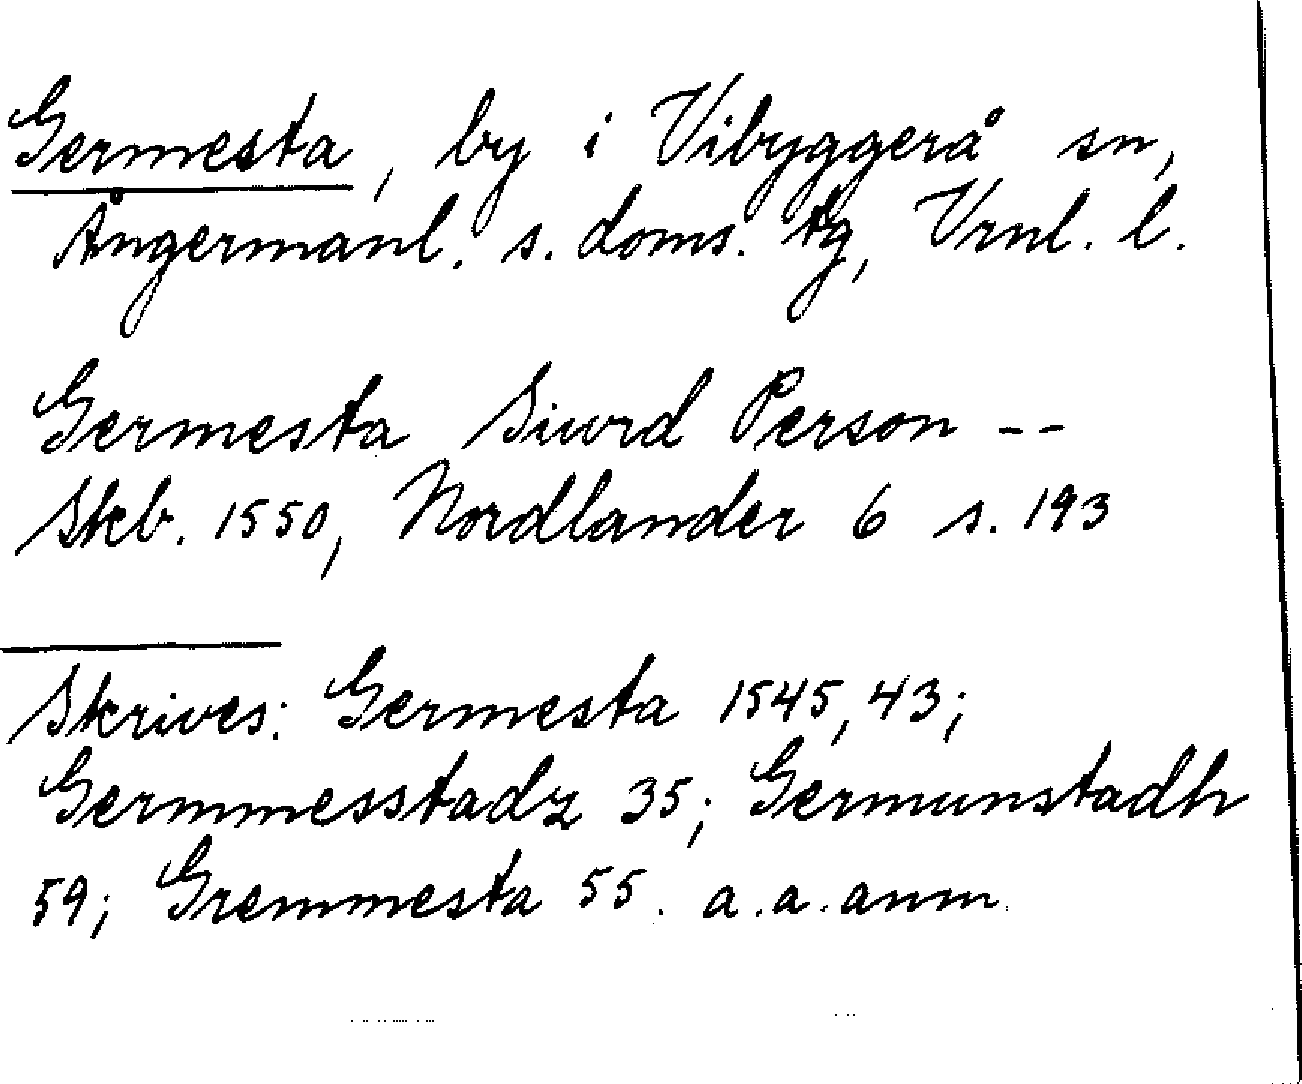 Germesta, by i Vibyggerå sn,
Ångermanl. s. doms. tg, Vrnl. l.
Germesta Siurd Person --
Skb. 1550, Nordlander 6 s. 193
Skrives: Germesta 1545, 43;
Germmesstadz 35; Germunstadh
59; Gremmesta 55. a.a. anm.